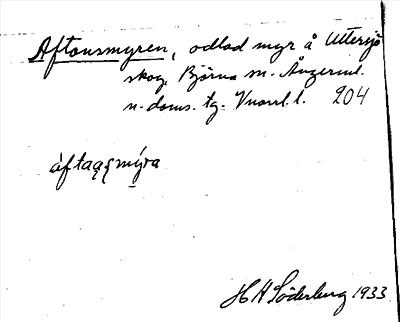 Aftonsmyren, odlad myr å Uttersjö
skog, Björna sn. Ångerml.
n. doms. tg. Vuorl. l. 204
åftaęęmýra
H H Söderberg 1933